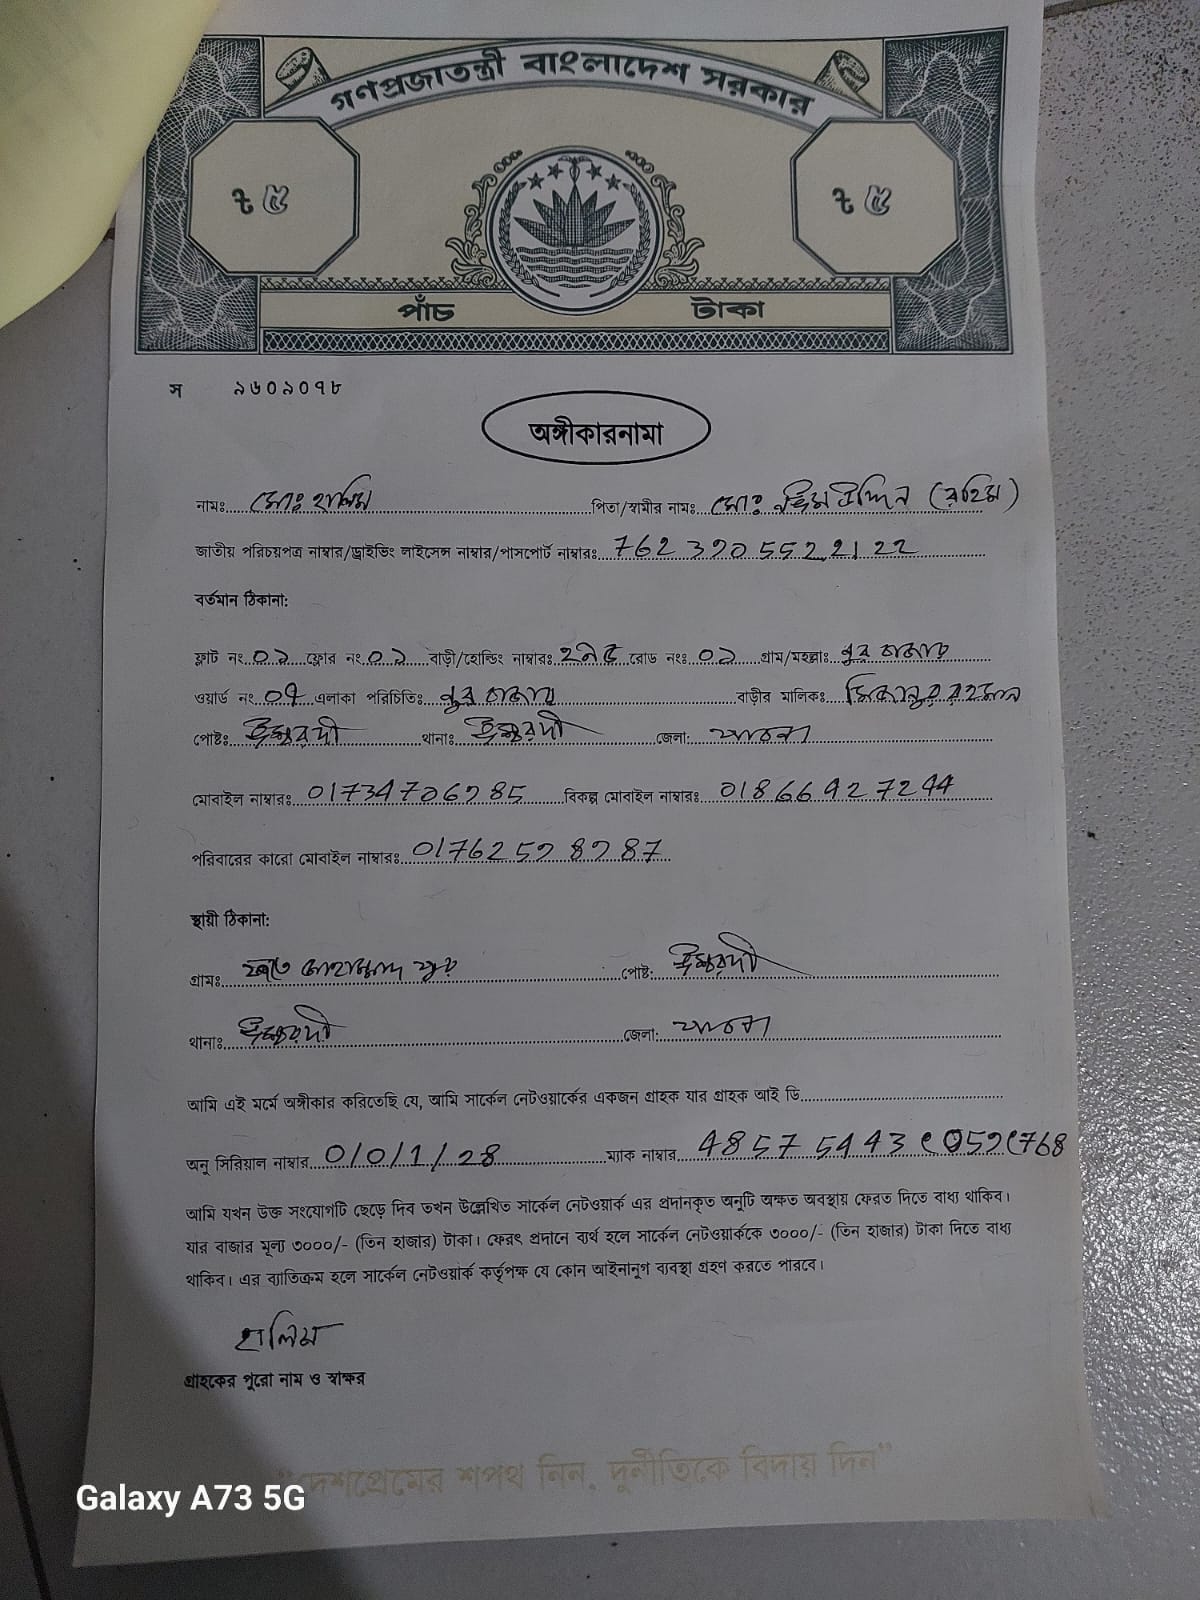 গণপ্রজাতন্ত্রী বাংলাদেশ সরকার
৳ ৫ ৳ ৫
পাঁচ টাকা
স ৯৬০৯০৭৮
অঙ্গীকারনামা
নামঃ মোঃ হালিম পিতা/স্বামীর নামঃ মোঃ (রহিম)
জাতীয় পরিচয়পত্র নাম্বার/ড্রাইভিং লাইসেন্স নাম্বার/পাসপোর্ট নাম্বারঃ
বর্তমান ঠিকানা:
ফ্লাট নং ০১ ফ্লোর নং ০১ বাড়ী/হোল্ডিং নাম্বারঃ রোড নংঃ ০১ গ্রাম/মহল্লাঃ
ওয়ার্ড নং ০৭ এলাকা পরিচিতিঃ বাড়ীর মালিকঃ মিজানুর রহমান
পোষ্টঃ ঈশ্বরদী থানাঃ ঈশ্বরদী জেলা: পাবনা
মোবাইল নাম্বারঃ বিকল্প মোবাইল নাম্বারঃ
পরিবারের কারো মোবাইল নাম্বারঃ
স্থায়ী ঠিকানা:
গ্রামঃ পোষ্ট: ঈশ্বরদী
থানাঃ ঈশ্বরদী জেলা: পাবনা
আমি এই মর্মে অঙ্গীকার করিতেছি যে, আমি সার্কেল নেটওয়ার্কের একজন গ্রাহক যার গ্রাহক আই ডি
অনু সিরিয়াল নাম্বার 0/0/1/28 ম্যাক নাম্বার
আমি যখন উক্ত সংযোগটি ছেড়ে দিব তখন উল্লেখিত সার্কেল নেটওয়ার্ক এর প্রদানকৃত অনুটি অক্ষত অবস্থায় ফেরত দিতে বাধ্য থাকিব।
যার বাজার মূল্য ৩০০০/- (তিন হাজার) টাকা। ফেরৎ প্রদানে ব্যর্থ হলে সার্কেল নেটওয়ার্ককে ৩০০০/- (তিন হাজার) টাকা দিতে বাধ্য
থাকিব। এর ব্যাতিক্রম হলে সার্কেল নেটওয়ার্ক কর্তৃপক্ষ যে কোন আইনানুগ ব্যবস্থা গ্রহণ করতে পারবে।
হালিম
গ্রাহকের পুরো নাম ও স্বাক্ষর
“দেশপ্রেমের শপথ নিন, দুর্নীতিকে বিদায় দিন”
Galaxy A73 5G